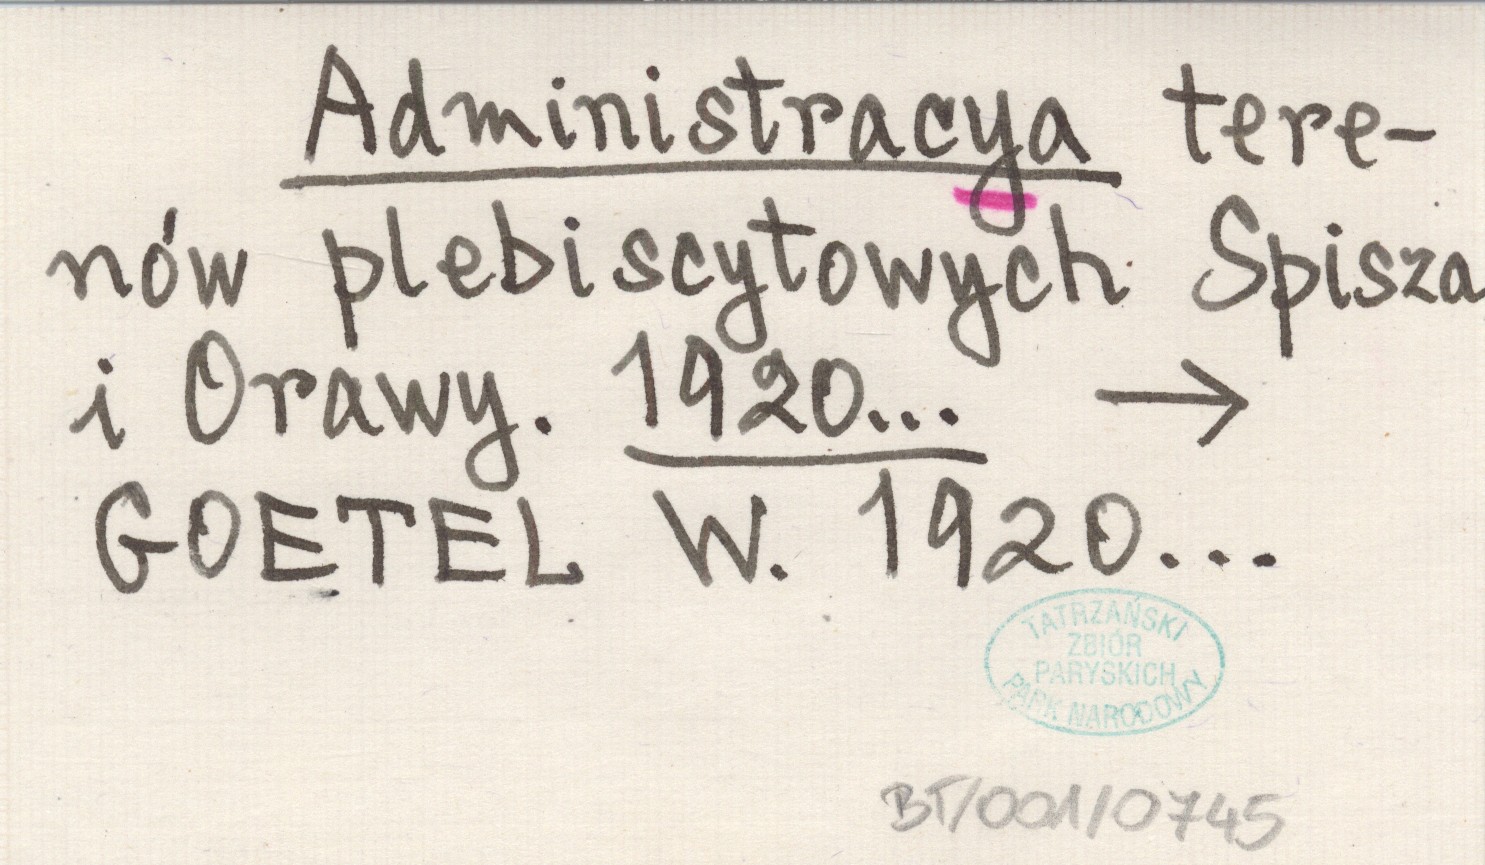 Administracya tere-
nów plebiscytowych Spisza
i Orawy. 1920... →
GOETEL W. 1920...
TATRZAŃSKI
ZBIÓR
PARYSKICH
PARK NARODOWY
BT/001/0745